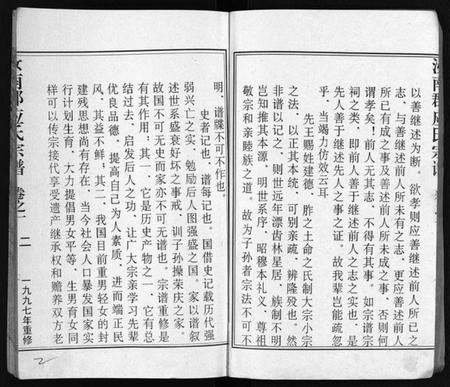 汝南郡应氏宗谱
以善继述为断。欲孝则应善继述前人所已之
志，与善继述前人所未有之志，更应善述前人
所已有成之事及善述前人所未成之事，否则何
谓孝矣！前人无其志，不得有其事。如宗谱宗
祠之类，即前人善于继述前人之志之实也，是
先人善于继述先人之事之证。故我辈岂能疏忽
乎，当竭力仿效云耳
先王赐姓建德，胙之土命之氏制大宗小宗
之法，以正其本统，可别亲疏，辨隆殁也。然
非谱以记之，则世远年漂齿林星居，族制不明
岂知推其本源，明世系序，昭穆本礼义，尊祖
敬宗和亲睦族之道。故为子孙者宗法不可不
明，谱牒不可不作也。
史者记也，谱每记也。国借史记载历代强
弱兴亡之实，勉励后人图强盛之国。家以谱叙
述世系盛衰好坏之事戒，训子孙操荣庆之家。
故国不可无史而家亦不可无谱也。宗谱重修是
有其作用：其一，它是历史产物之一，它有总
结过去，启发后人之功，让广大宗亲学习先辈
优良品德，提高自己为人素质，进而端正民
风，其益不鲜；其二，我国目前重男轻女的封
建残思想尚有存在，当今社会人口暴发国家实
行计划生育，大力提倡男女平等，生男育女同
样可以传宗接代享受遗产继承权和赡养双方老
汝南郡应氏宗谱 卷之一 二 一九九七年重修
2